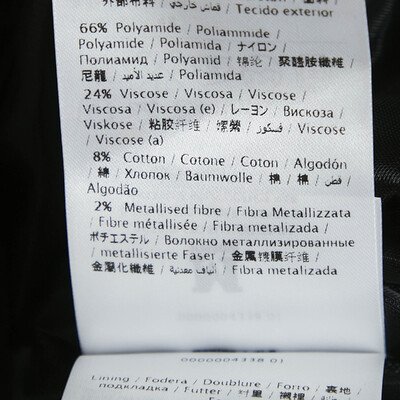 قماش خارجي /
/ Tecido exterior
66% Polyamide / Poliammide /
Polyamide / Poliamida / ナイロン /
Полиамид / Polyamid / 锦纶 / 聚醯胺纖維 /
尼龍 / عديد الأميد / Poliamida
24% Viscose / Viscosa / Viscose /
Viscosa / Viscosa (e) / レーヨン / Вискоза /
Viskose / 粘胶纤维 / 嫘縈 / فسكوز / Viscose
/ Viscose (a)
8% Cotton / Cotone / Coton / Algodón
/ 綿 / Хлопок / Baumwolle / 棉 / 棉 / قطن /
Algodão
2% Metallised fibre / Fibra Metallizzata
/ Fibre métallisée / Fibra metalizada /
ポチエステル / Волокно металлизированные
/ metallisierte Faser / 金属镀膜纤维 /
金屬化纖維 / ألياف معدنية / Fibra metalizada
0000004338 01
Lining / Fodera / Doublure / Forro / 裏地 /
подкладка / Futter / 衬里 / 襯裡 /